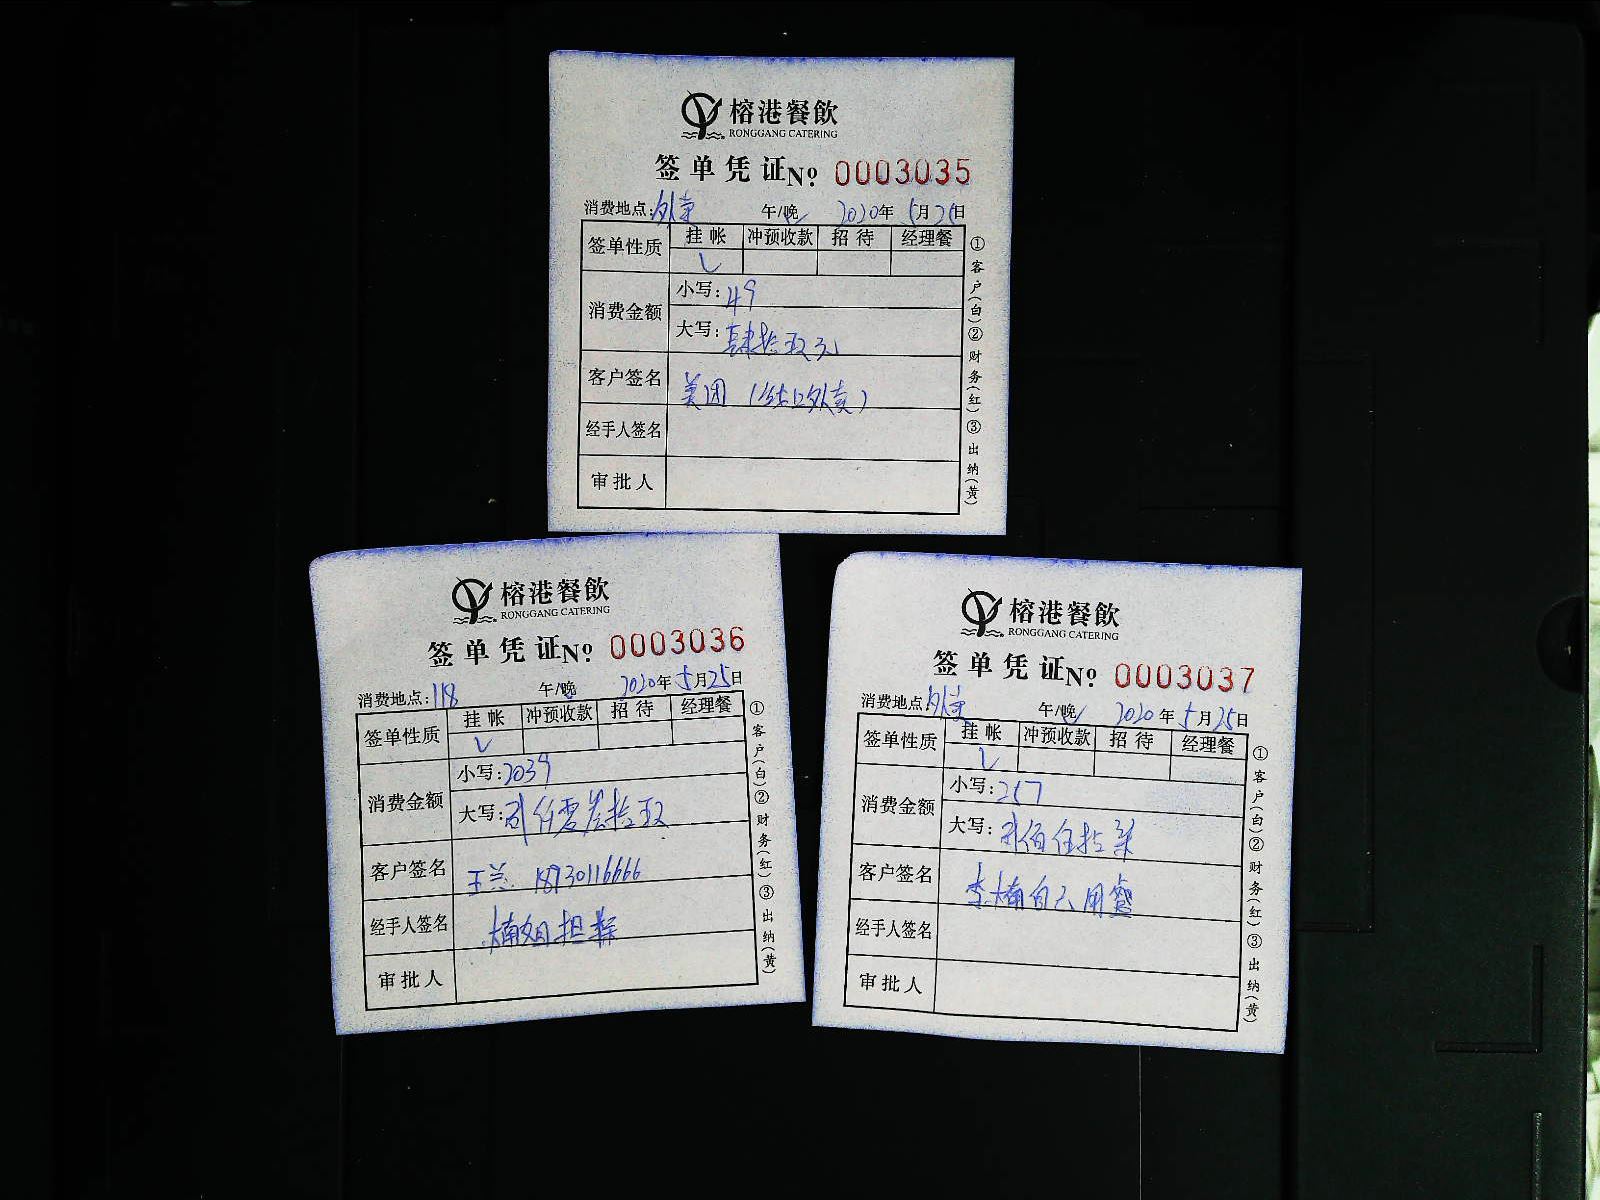 榕港餐飲
RONGGANG CATERING
签单凭证 No: 0003035
消费地点: 外卖 午/晚 2020年 5月25日
签单性质 挂帐 冲预收款 招待 经理餐
消费金额 小写: 49
大写: 肆拾玖元
客户签名 美团 (线上外卖)
经手人签名
审批人
①客户(白)②财务(红)③出纳(黄)
榕港餐飲
RONGGANG CATERING
签单凭证 No: 0003036
消费地点: 118 午/晚 2020年 5月25日
签单性质 挂帐 冲预收款 招待 经理餐
消费金额 小写: 2039
大写: 贰仟零叁拾玖
客户签名 王兰 18730116666
经手人签名 楠姐担
审批人
①客户(白)②财务(红)③出纳(黄)
榕港餐飲
RONGGANG CATERING
签单凭证 No: 0003037
消费地点: 外卖 午/晚 2020年 5月25日
签单性质 挂帐 冲预收款 招待 经理餐
消费金额 小写: 257
大写: 贰佰伍拾柒
客户签名 李楠自己用餐
经手人签名
审批人
①客户(白)②财务(红)③出纳(黄)